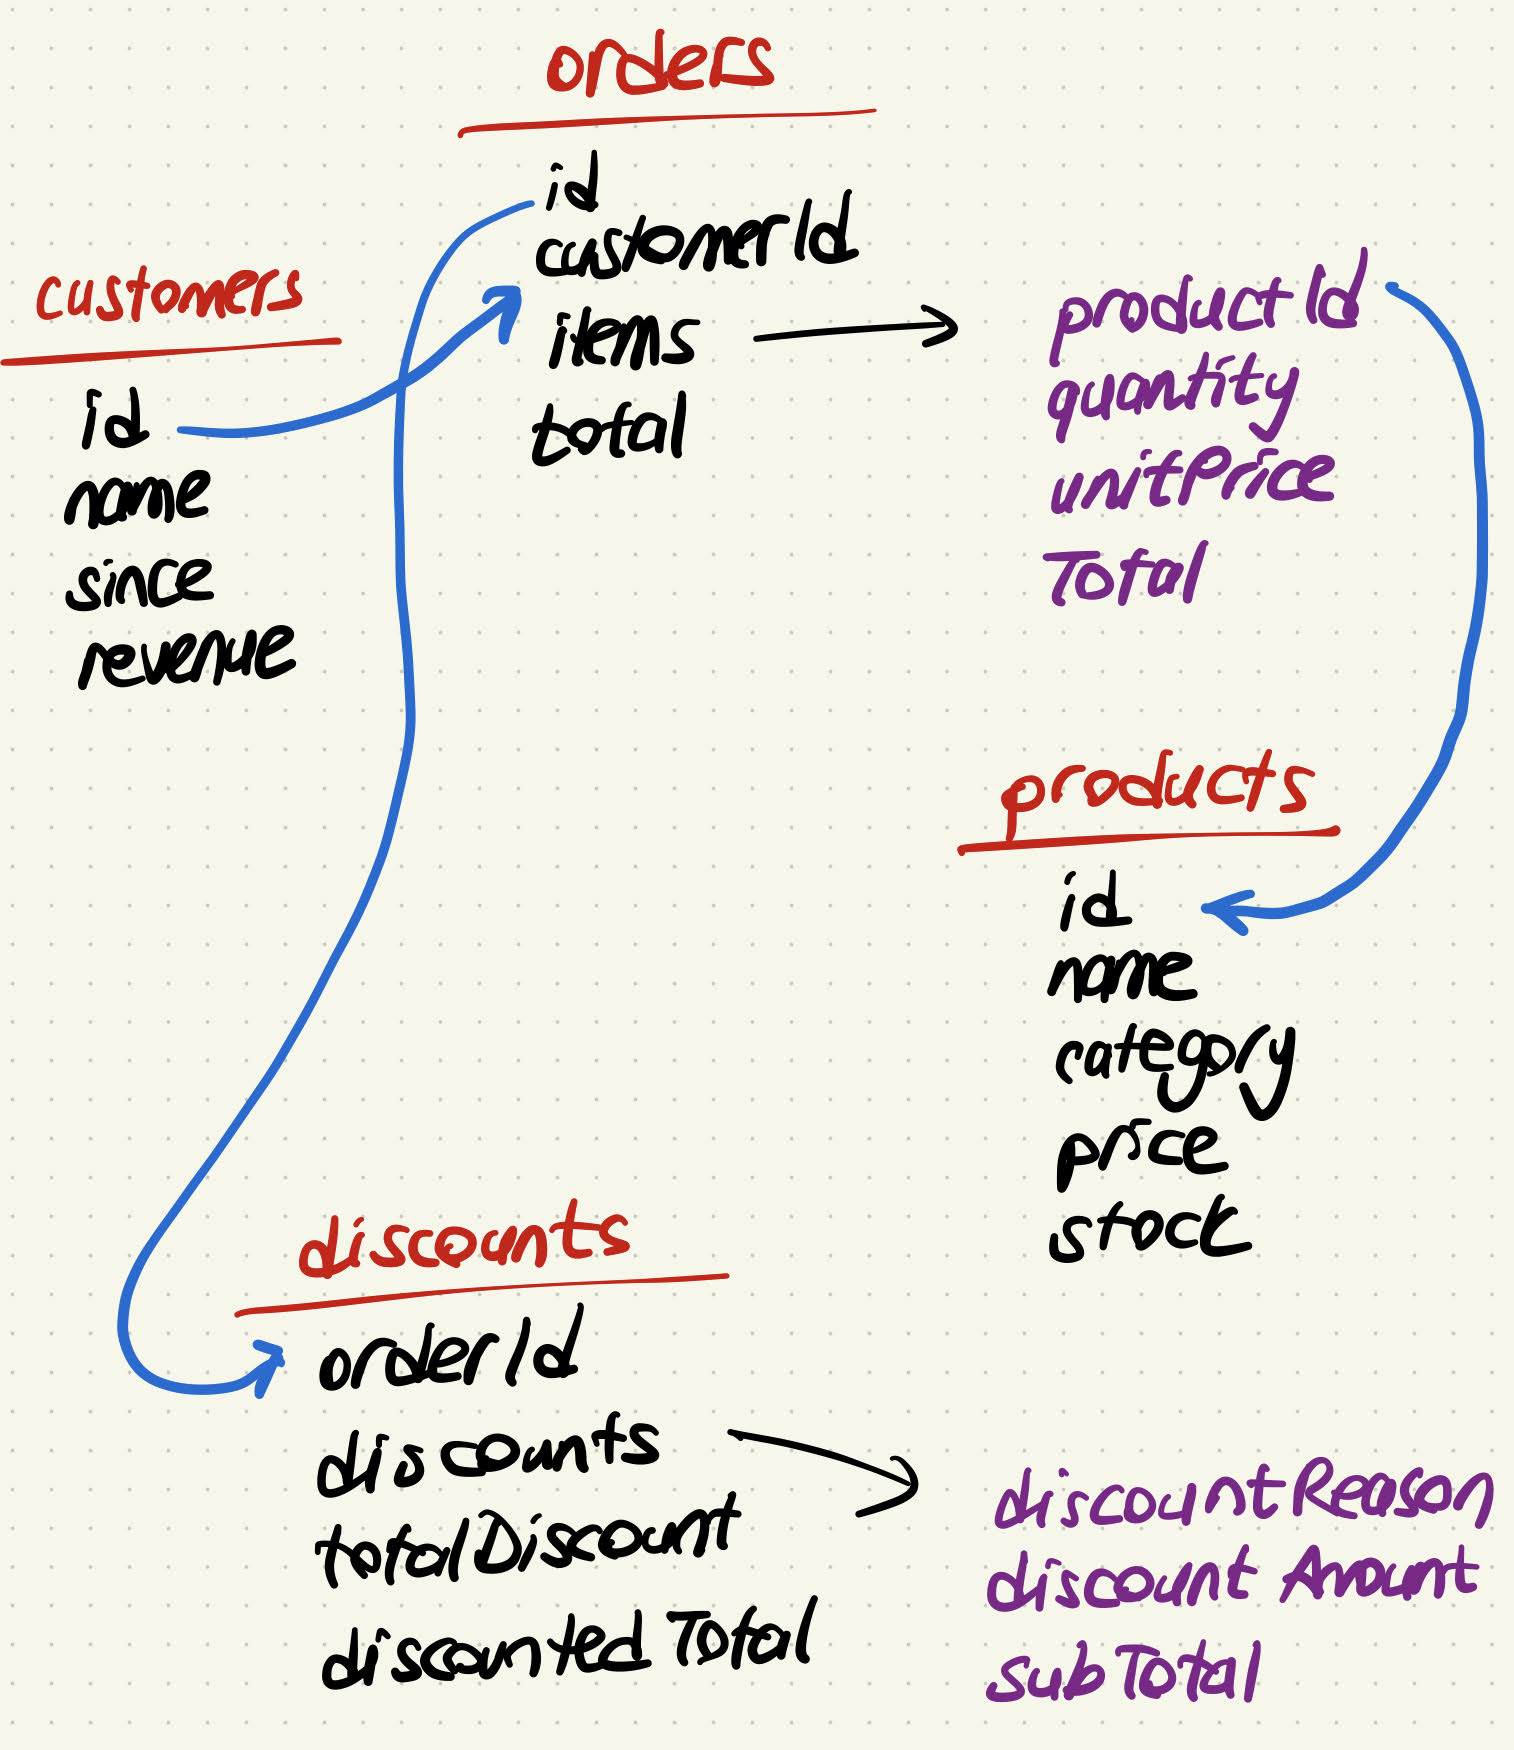 orders
id
customerId
items
total
customers
id
name
since
revenue
productId
quantity
unitPrice
Total
products
id
name
category
price
stock
discounts
orderId
discounts
totalDiscount
discounted Total
discountReason
discount Amount
subTotal